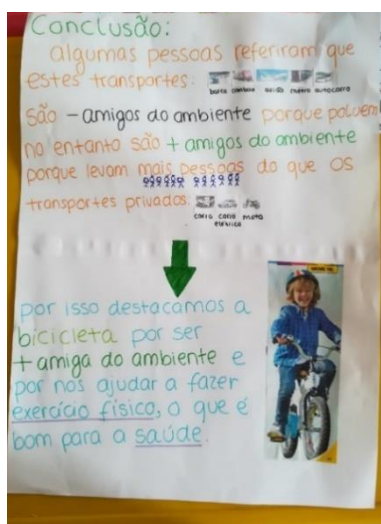 Conclusão:
algumas pessoas referiram que
estes transportes:
barco comboio avião metro autocarro
são - amigos do ambiente porque poluem
no entanto são + amigos do ambiente
porque levam mais pessoas do que os
transportes privados:
carro carro mota
elétrico
por isso destacamos a
bicicleta por ser
+ amiga do ambiente e
por nos ajudar a fazer
exercício físico, o que é
bom para a saúde.